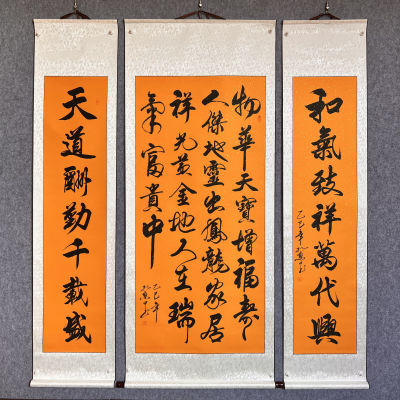 和氣致祥萬代興
乙巳年
物華天寶增福壽
人傑地靈出鳳龍家居
祥光黃金地人生瑞
氣富貴中
乙巳年
天道酬勤千載盛